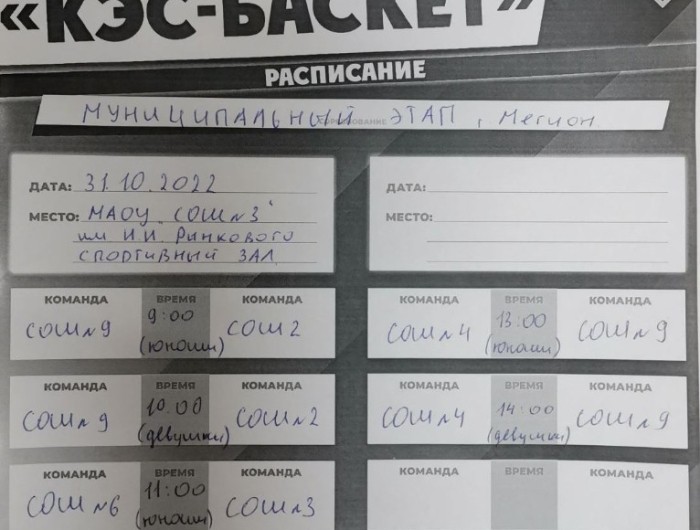 «КЭС-БАСКЕТ»
РАСПИСАНИЕ
МУНИЦИПАЛЬНЫЙ ЭТАП, Мегион
ДАТА: 31.10.2022
МЕСТО: МАОУ "СОШ №3"
им И.И. Рынкового
СПОРТИВНЫЙ ЗАЛ
ДАТА:
МЕСТО:
КОМАНДА ВРЕМЯ КОМАНДА
СОШ №9 9:00 СОШ 2
(юноши)
КОМАНДА ВРЕМЯ КОМАНДА
СОШ №4 13:00 СОШ №9
(юноши)
КОМАНДА ВРЕМЯ КОМАНДА
СОШ №9 10.00 СОШ №2
(девушки)
КОМАНДА ВРЕМЯ КОМАНДА
СОШ №4 14:00 СОШ №9
(девушки)
КОМАНДА ВРЕМЯ КОМАНДА
СОШ №6 11:00 СОШ №3
(юноши)
КОМАНДА ВРЕМЯ КОМАНДА